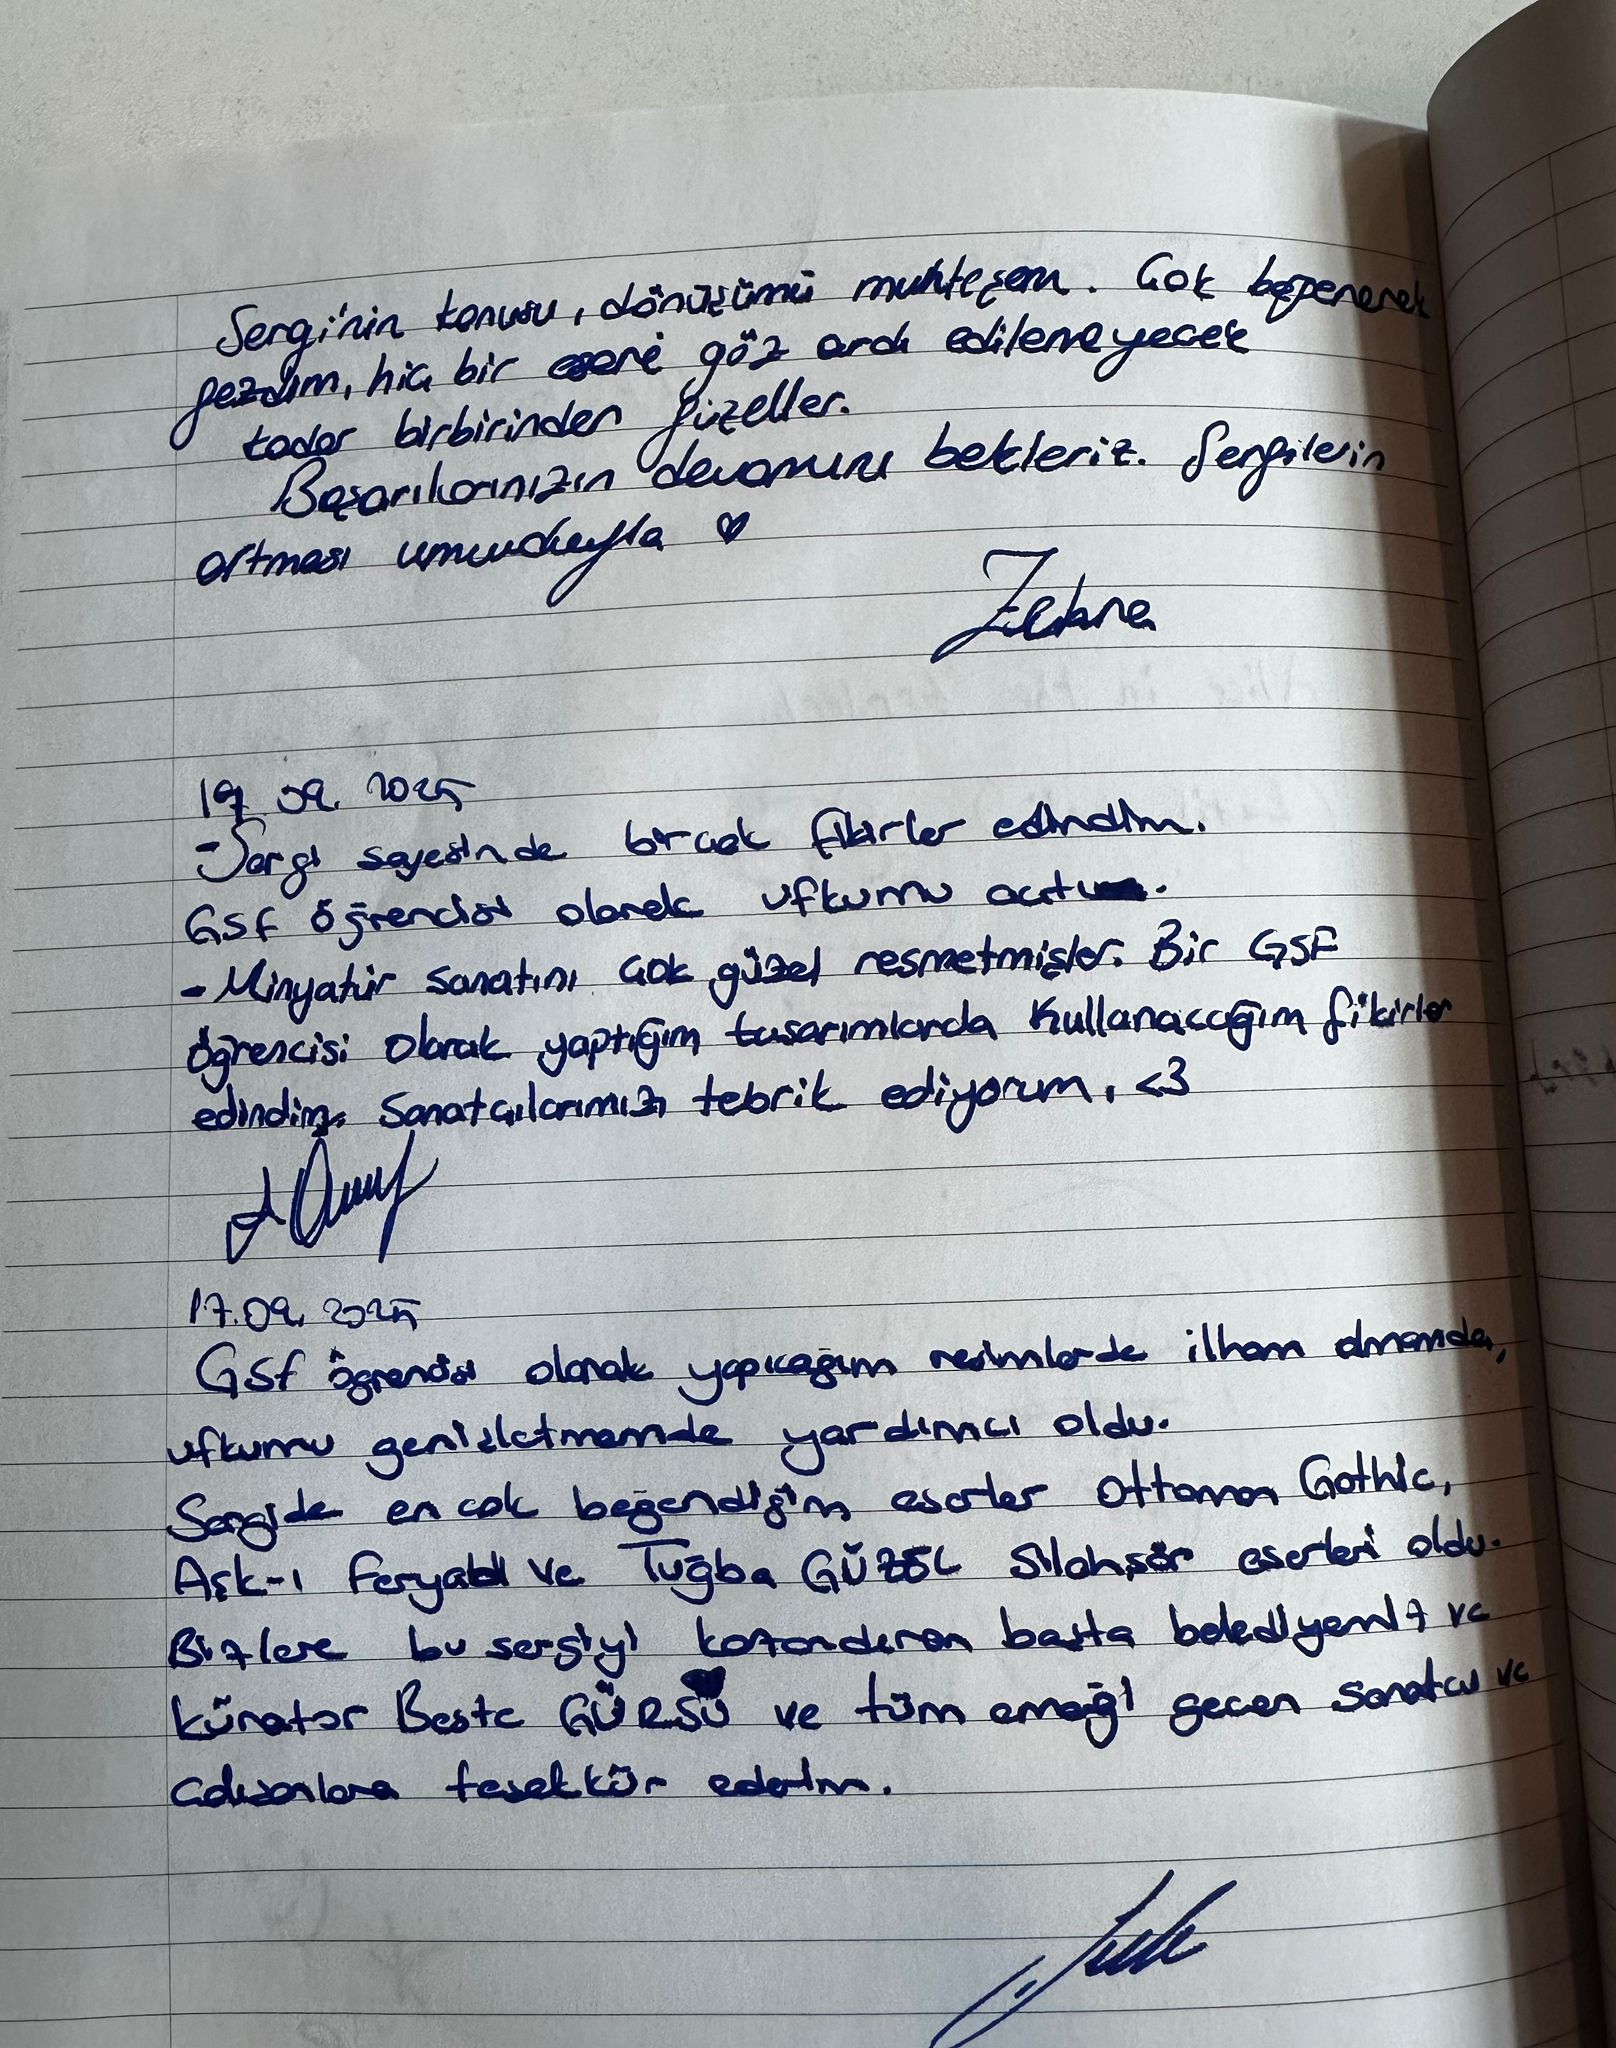 Sergi'nin konusu, dönüşümü muhteşem. Çok beğenerek
gezdim, hiç bir eseri göz ardı edilemeyecek
kadar birbirinden güzeller.
Başarılarınızın devamını bekleriz. Sergilerin
artması umuduyla ♡
Zehra
17.09.2025
-Sergi sayesinde birçok fikirler edindim.
GSF öğrencisi olarak ufkumu açtı.
- Minyatür sanatını çok güzel resmetmişler. Bir GSF
öğrencisi olarak yaptığım tasarımlarda kullanacağım fikirler
edindim. Sanatçılarımızı tebrik ediyorum, <3
17.09.2025
GSF öğrencisi olarak yapıcağım resimlerde ilham almamda,
ufkumu genişletmemde yardımcı oldu.
Sergide en çok beğendiğim eserler Ottoman Gothic,
Aşk-ı Feryadı ve Tuğba GÜZEL Silahşör eserleri oldu.
Bizlere bu sergiyi kazandıran başta belediyemiz ve
küratör Beste GÜRSU ve tüm emeği geçen sanatçı ve
çalışanlara teşekkür ederim.